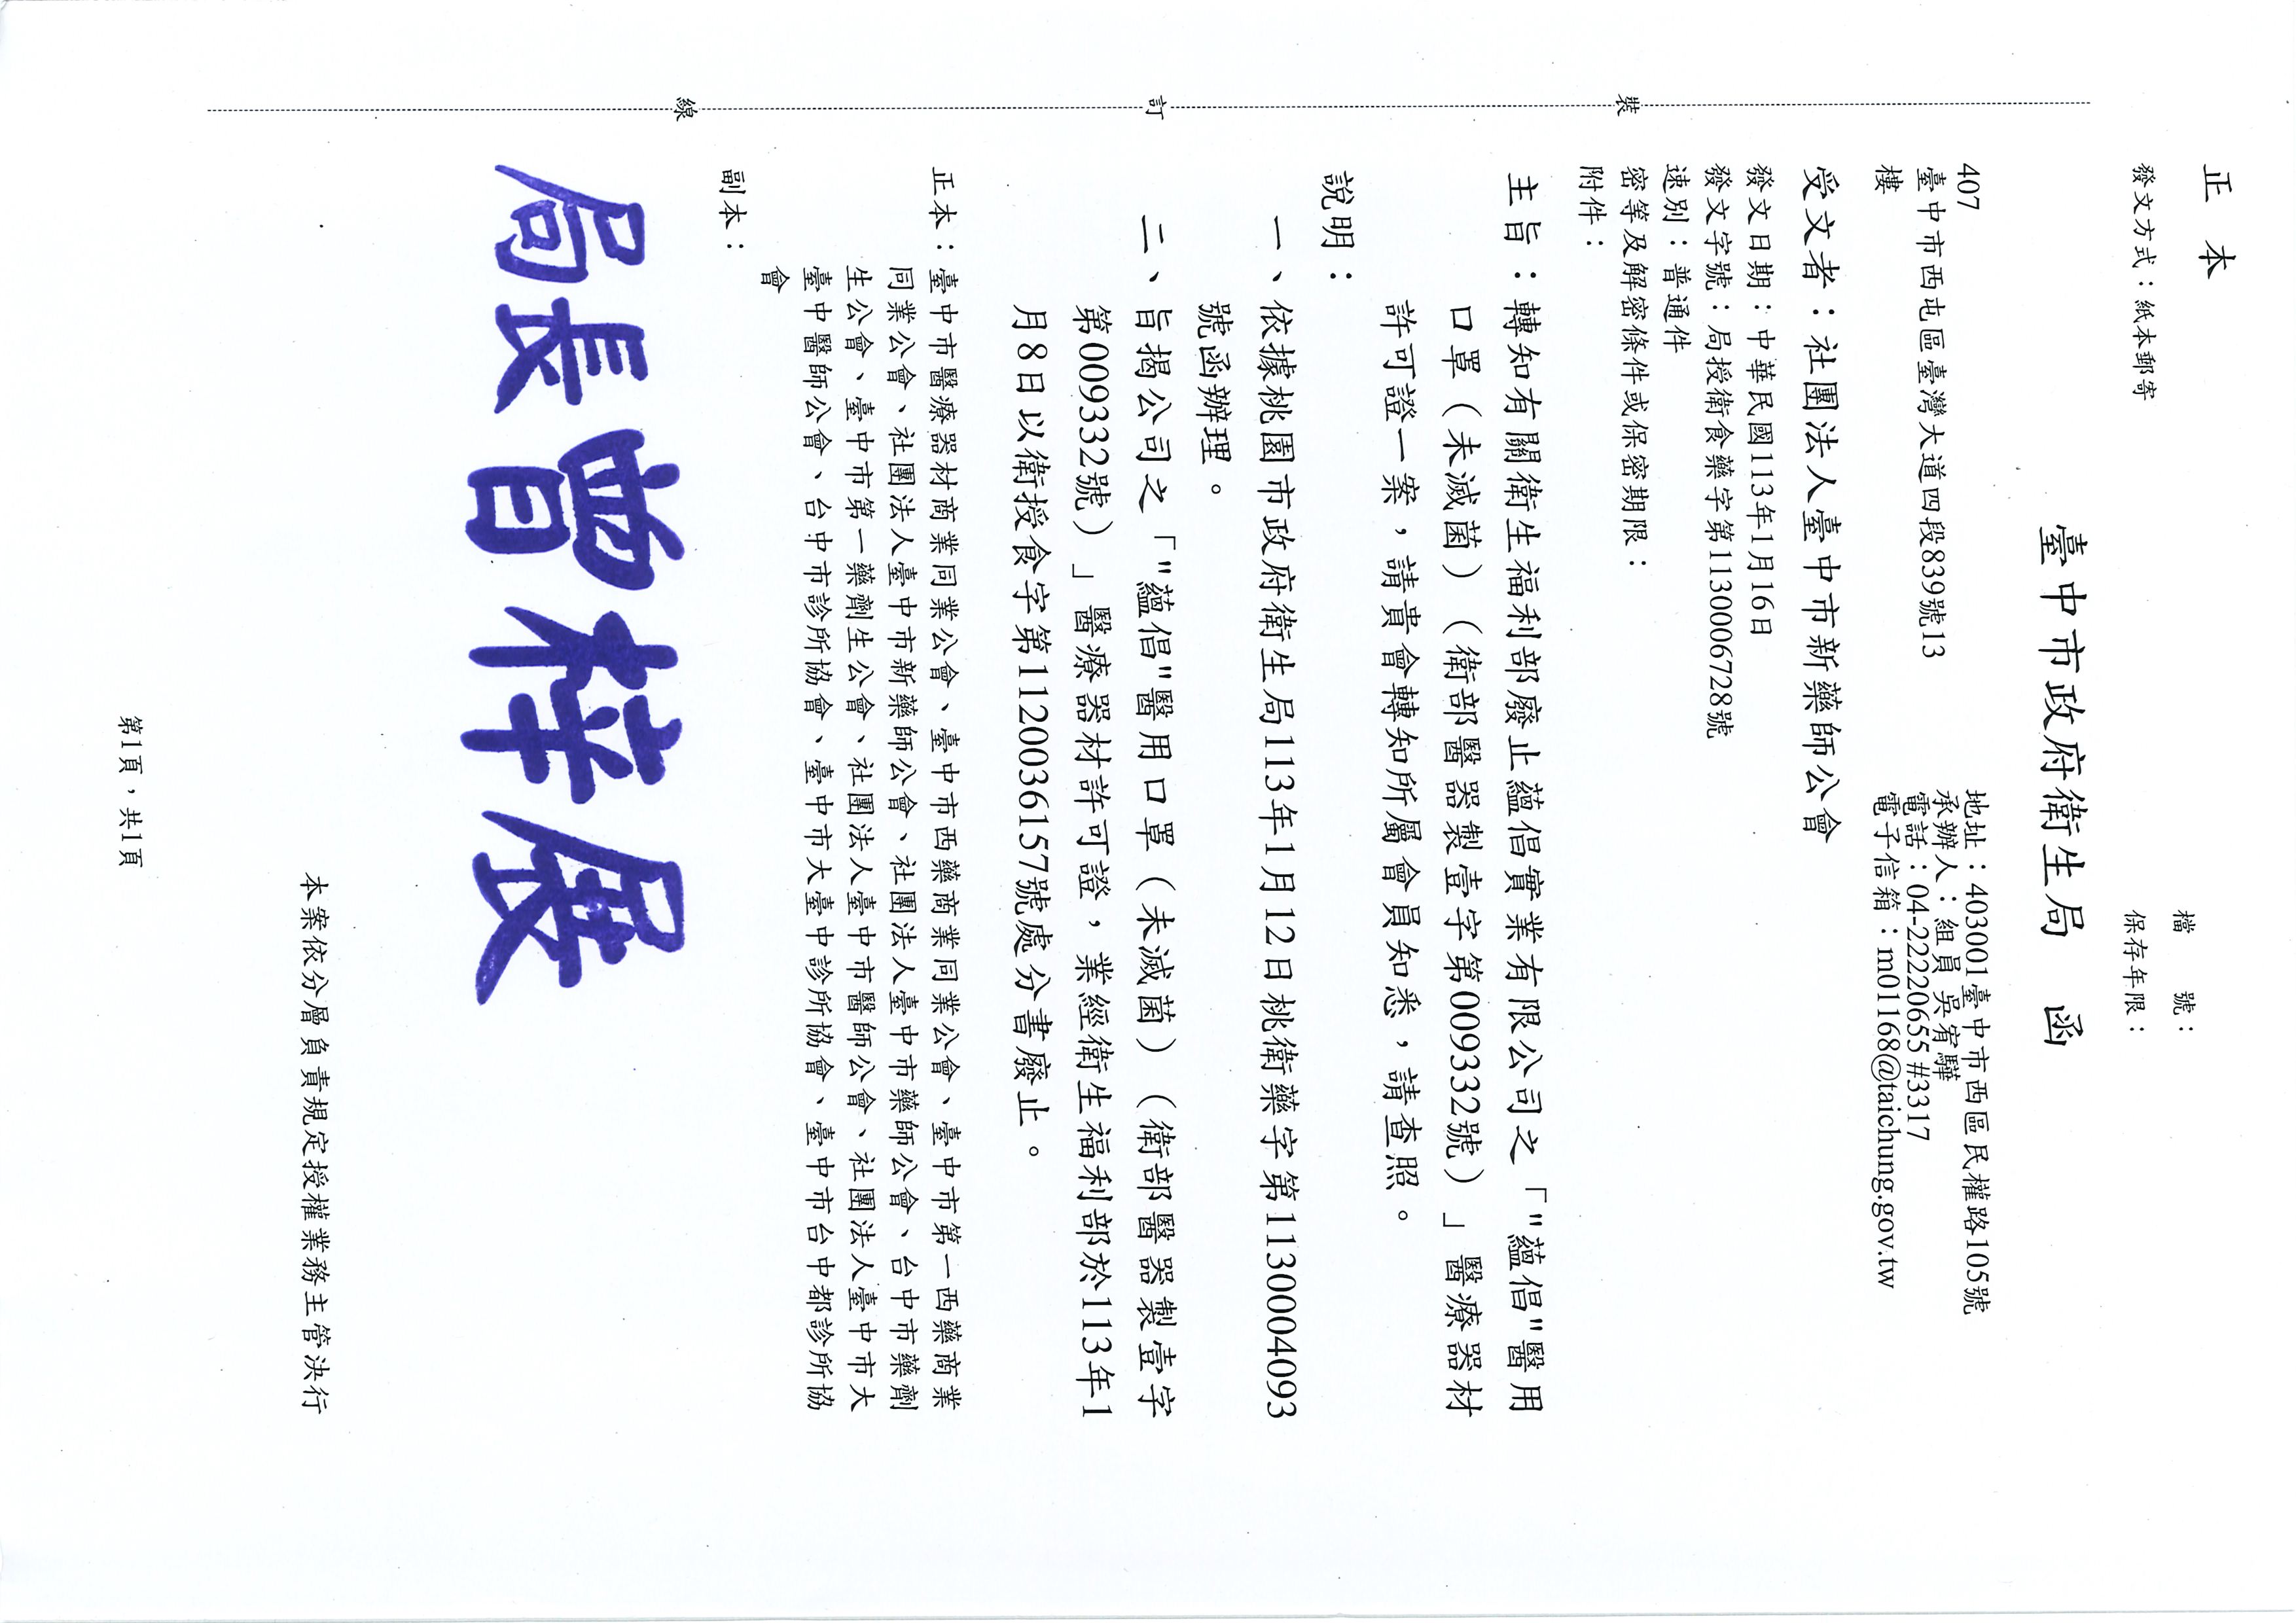 正本
檔 號：
保存年限：
發文方式：紙本郵寄
臺中市政府衛生局 函
地址：403001臺中市西區民權路105號
承辦人：組員 吳宥驊
電話：04-22220655 #3317
電子信箱：m01168@taichung.gov.tw
407
臺中市西屯區臺灣大道四段839號13
樓
受文者：社團法人臺中市新藥師公會
發文日期：中華民國113年1月16日
發文字號：局授衛食藥字第1130006728號
速別：普通件
密等及解密條件或保密期限：
附件：
主旨：轉知有關衛生福利部廢止蘊倡實業有限公司之「"蘊倡"醫用
口罩（未滅菌）（衛部醫器製壹字第009332號）」醫療器材
許可證一案，請貴會轉知所屬會員知悉，請查照。
說明：
一、依據桃園市政府衛生局113年1月12日桃衛藥字第1130004093
號函辦理。
二、旨揭公司之「"蘊倡"醫用口罩（未滅菌）（衛部醫器製壹字
第009332號）」醫療器材許可證，業經衛生福利部於113年1
月8日以衛授食字第1120036157號處分書廢止。
正本：臺中市醫療器材商業同業公會、臺中市西藥商業同業公會、臺中市第一西藥商業
同業公會、社團法人臺中市新藥師公會、社團法人臺中市藥師公會、台中市藥劑
生公會、臺中市第一藥劑生公會、社團法人臺中市醫師公會、社團法人臺中市大
臺中醫師公會、台中市診所協會、臺中市大臺中診所協會、臺中市台中都診所協
會
副本：
局長曾梓展
本案依分層負責規定授權業務主管決行
第1頁，共1頁
裝
訂
線